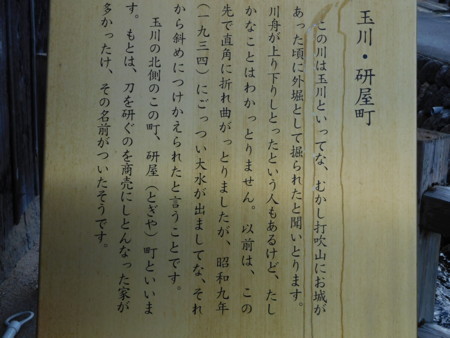 玉川・研屋町
この川は玉川といってな、むかし打吹山にお城が
あった頃に外堀として掘られたと聞いとります。
川舟が上り下りしとったという人もあるけど、たし
かなことはわかっとりません。以前は、この
先で直角に折れ曲がっとりましたが、昭和九年
（一九三四）にごっつい大水が出ましてな、それ
から斜めにつけかえられたと言うことです。
玉川の北側のこの町、研屋（とぎや）町といいま
す。もとは、刀を研ぐのを商売にしとんなった家が
多かったけ、その名前がついたそうです。